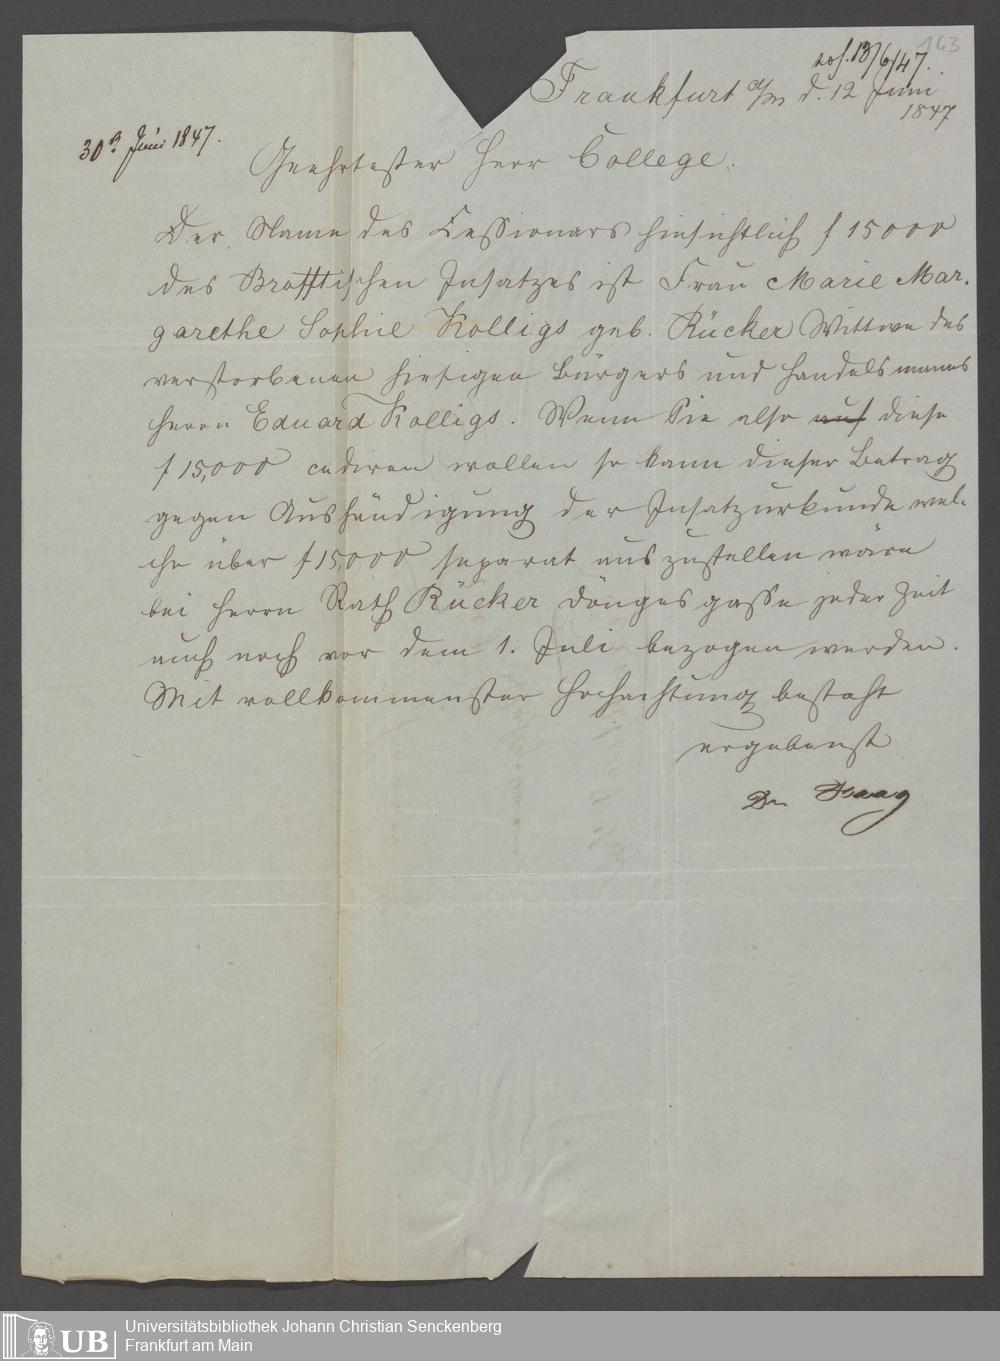 163
13/6/47.
Frankfurt a/m d. 12 Juni
1847
30n Juni 1847.
Geehrtester Herr College.
Der Name des Cessionars hinsichtlich f 15000
des Brofftischen Insatzes ist Frau Marie Mar.
garethe Sophie Kolligs geb. Rücker Wittwe des
verstorbenen hiesigen Bürgers und Handelsmanns
Herrn Eduard Kolligs. Wenn Sie also auf diese
f 15,000 cediren wollen so kann dieser Betrag
gegen Aushändigung der Insatzurkunde wel-
che über f 15,000 separat auszustellen wäre
bei Herrn Rath Rücker Döngesgasse jeder Zeit
auch noch vor dem 1. Juli bezogen werden.
Mit vollkommenster Hochachtung besteht
ergebenst
Dr Haag
UB
Universitätsbibliothek Johann Christian Senckenberg
Frankfurt am Main